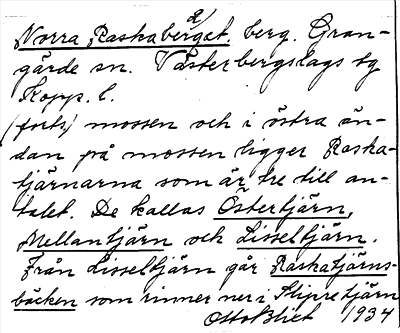 2)
Norra Raskaberget. berg. Gran-
gärde sn. Västerbergslags tg
Kopp. l.
(forts) mossen och i östra än-
dan på mossen ligger Raska-
tjärnarna som är tre till an-
talet. De kallas Östertjärn,
Mellantjärn och Lisseltjärn.
Från Lisseltjärn går Raskatjärns-
bäcken som rinner ner i Stipretjärn
Otto Blixt 1934